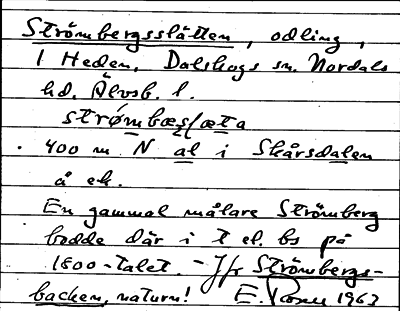 Strömbergsslätten, odling,
1 Heden, Dalskogs sn. Nordals
hd. Älvsb. l.
400 m N al i Skårsdalen
å ek.
En gammal målare Strömberg
bodde där i t el. bs på
1800-talet. - Jfr Strömbergs-
backen, naturn! E. 1963